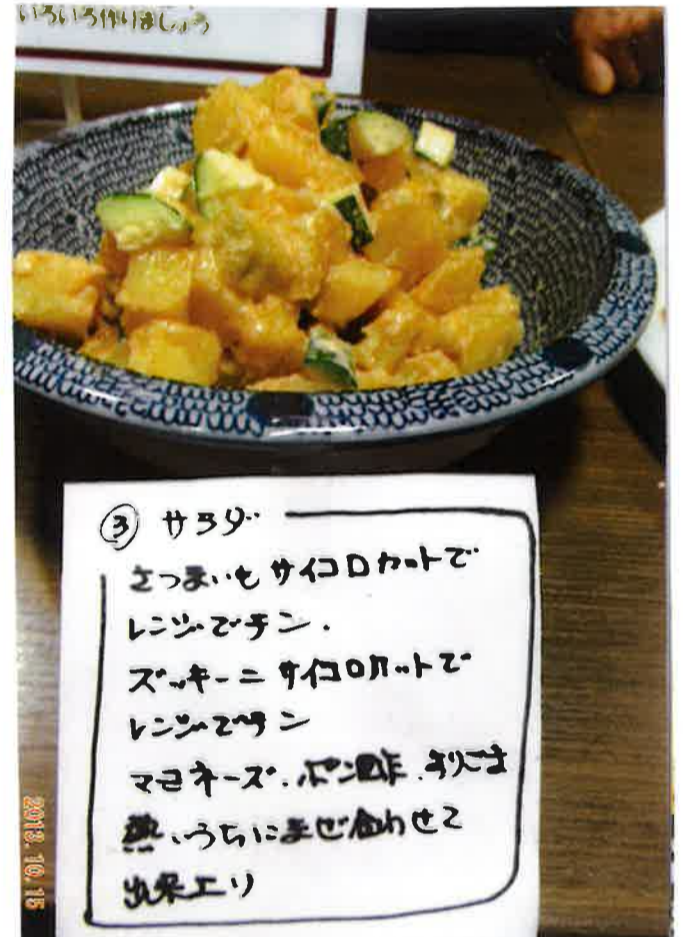 いろいろ作りましょう
③ サラダ
さつまいも サイコロカットで
レンジでチン.
ズッキーニ サイコロカットで
レンジでチン
マヨネーズ、ポン酢、すりごま
熱いうちにまぜ合わせて
出来上り
2013.10.15